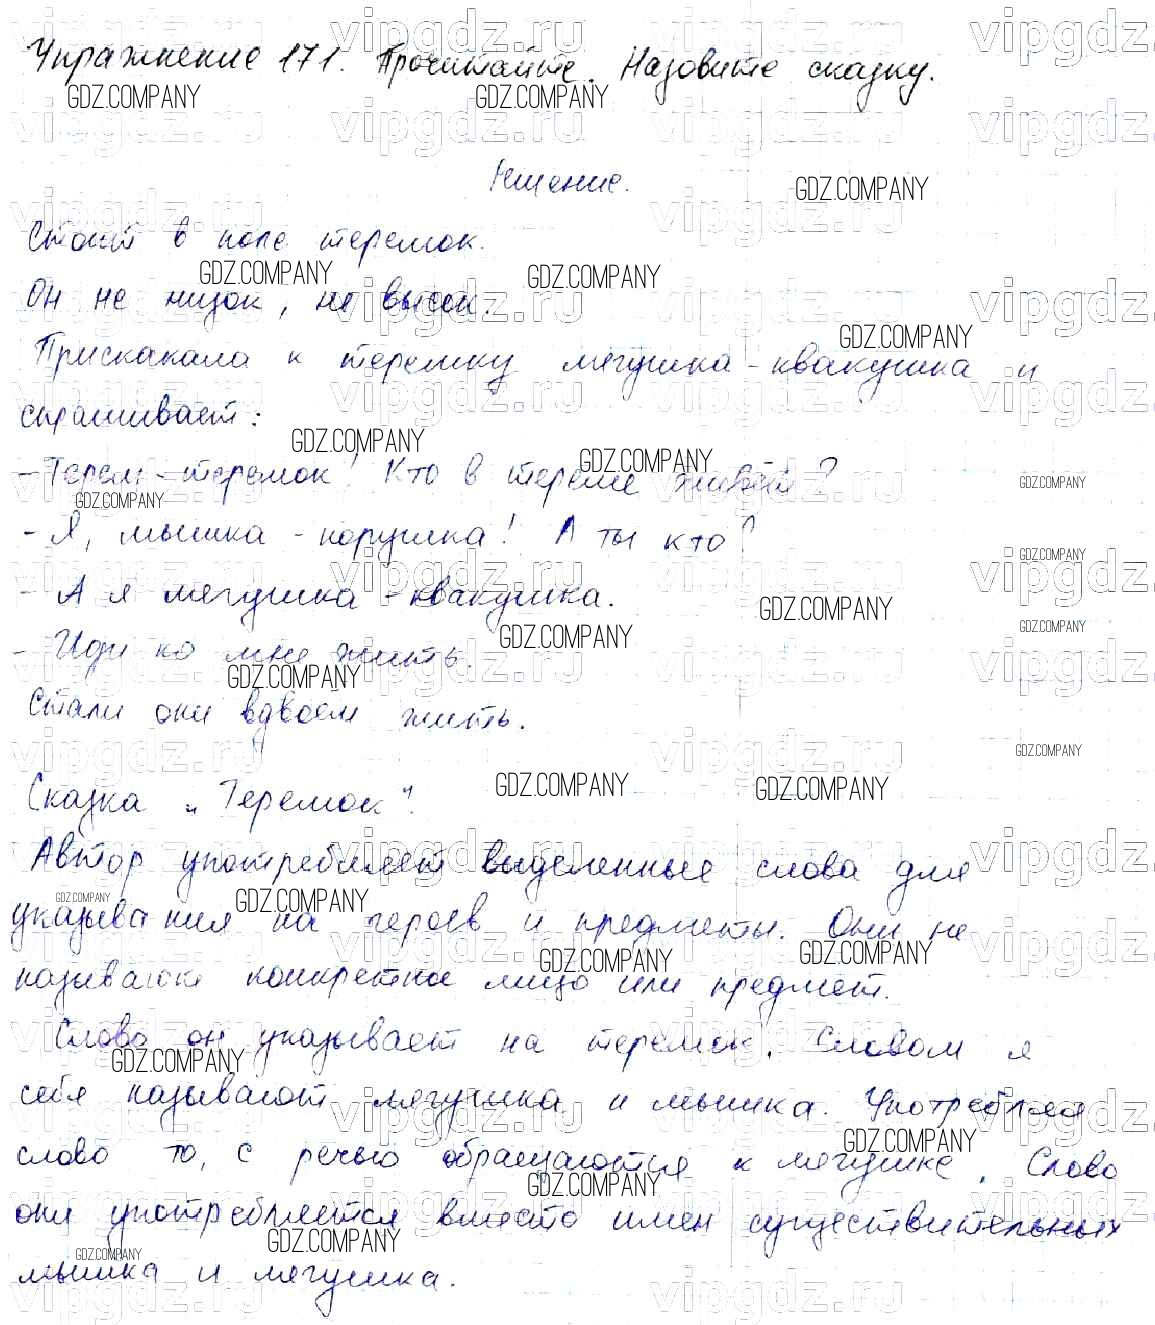 Упражнение 171. Прочитайте. Назовите сказку.
Решение.
Стоит в поле теремок.
Он не низок, не высок.
Прискакала к теремку лягушка-квакушка и
спрашивает:
- Терем-теремок! Кто в тереме живёт?
- Я, мышка-норушка! А ты кто?
- А я лягушка-квакушка.
- Иди ко мне жить.
Стали они вдвоём жить.
Сказка „Теремок".
Автор употребляет выделенные слова для
указывания на героев и предметы. Они не
называют конкретное лицо или предмет.
Слово он указывает на теремок. Словом я
себя называют лягушка и мышка. Употребляя
слово то, с речью обращаются к лягушке. Слово
они употребляется вместо имен существительных
мышка и лягушка.